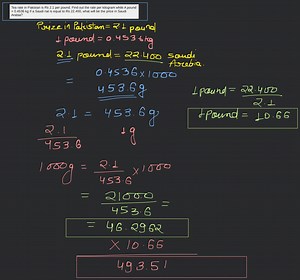 You rate in Pakistan is Rs 2.1 per pound. Find out the rate per kilogram while A pound
= 0.4536 kg. If a Saudi riat is equal to Rs 22.400, what will be the price in Saudi
Arabia?
in Pakistan = 2.1 pound
1 pound = 0.4534kg
2.1 pound = 22.400 saudi
= 0.4536 x 1000
453.6g
2.1 = 453.6g
2.1
453.6
1g
1 pound = 22.400
2.1
1 pound = 10.66
1000g = 2.1 x 1000
453.6
= 21000 =
453.6
= 46.2962
x 10.66
493.51